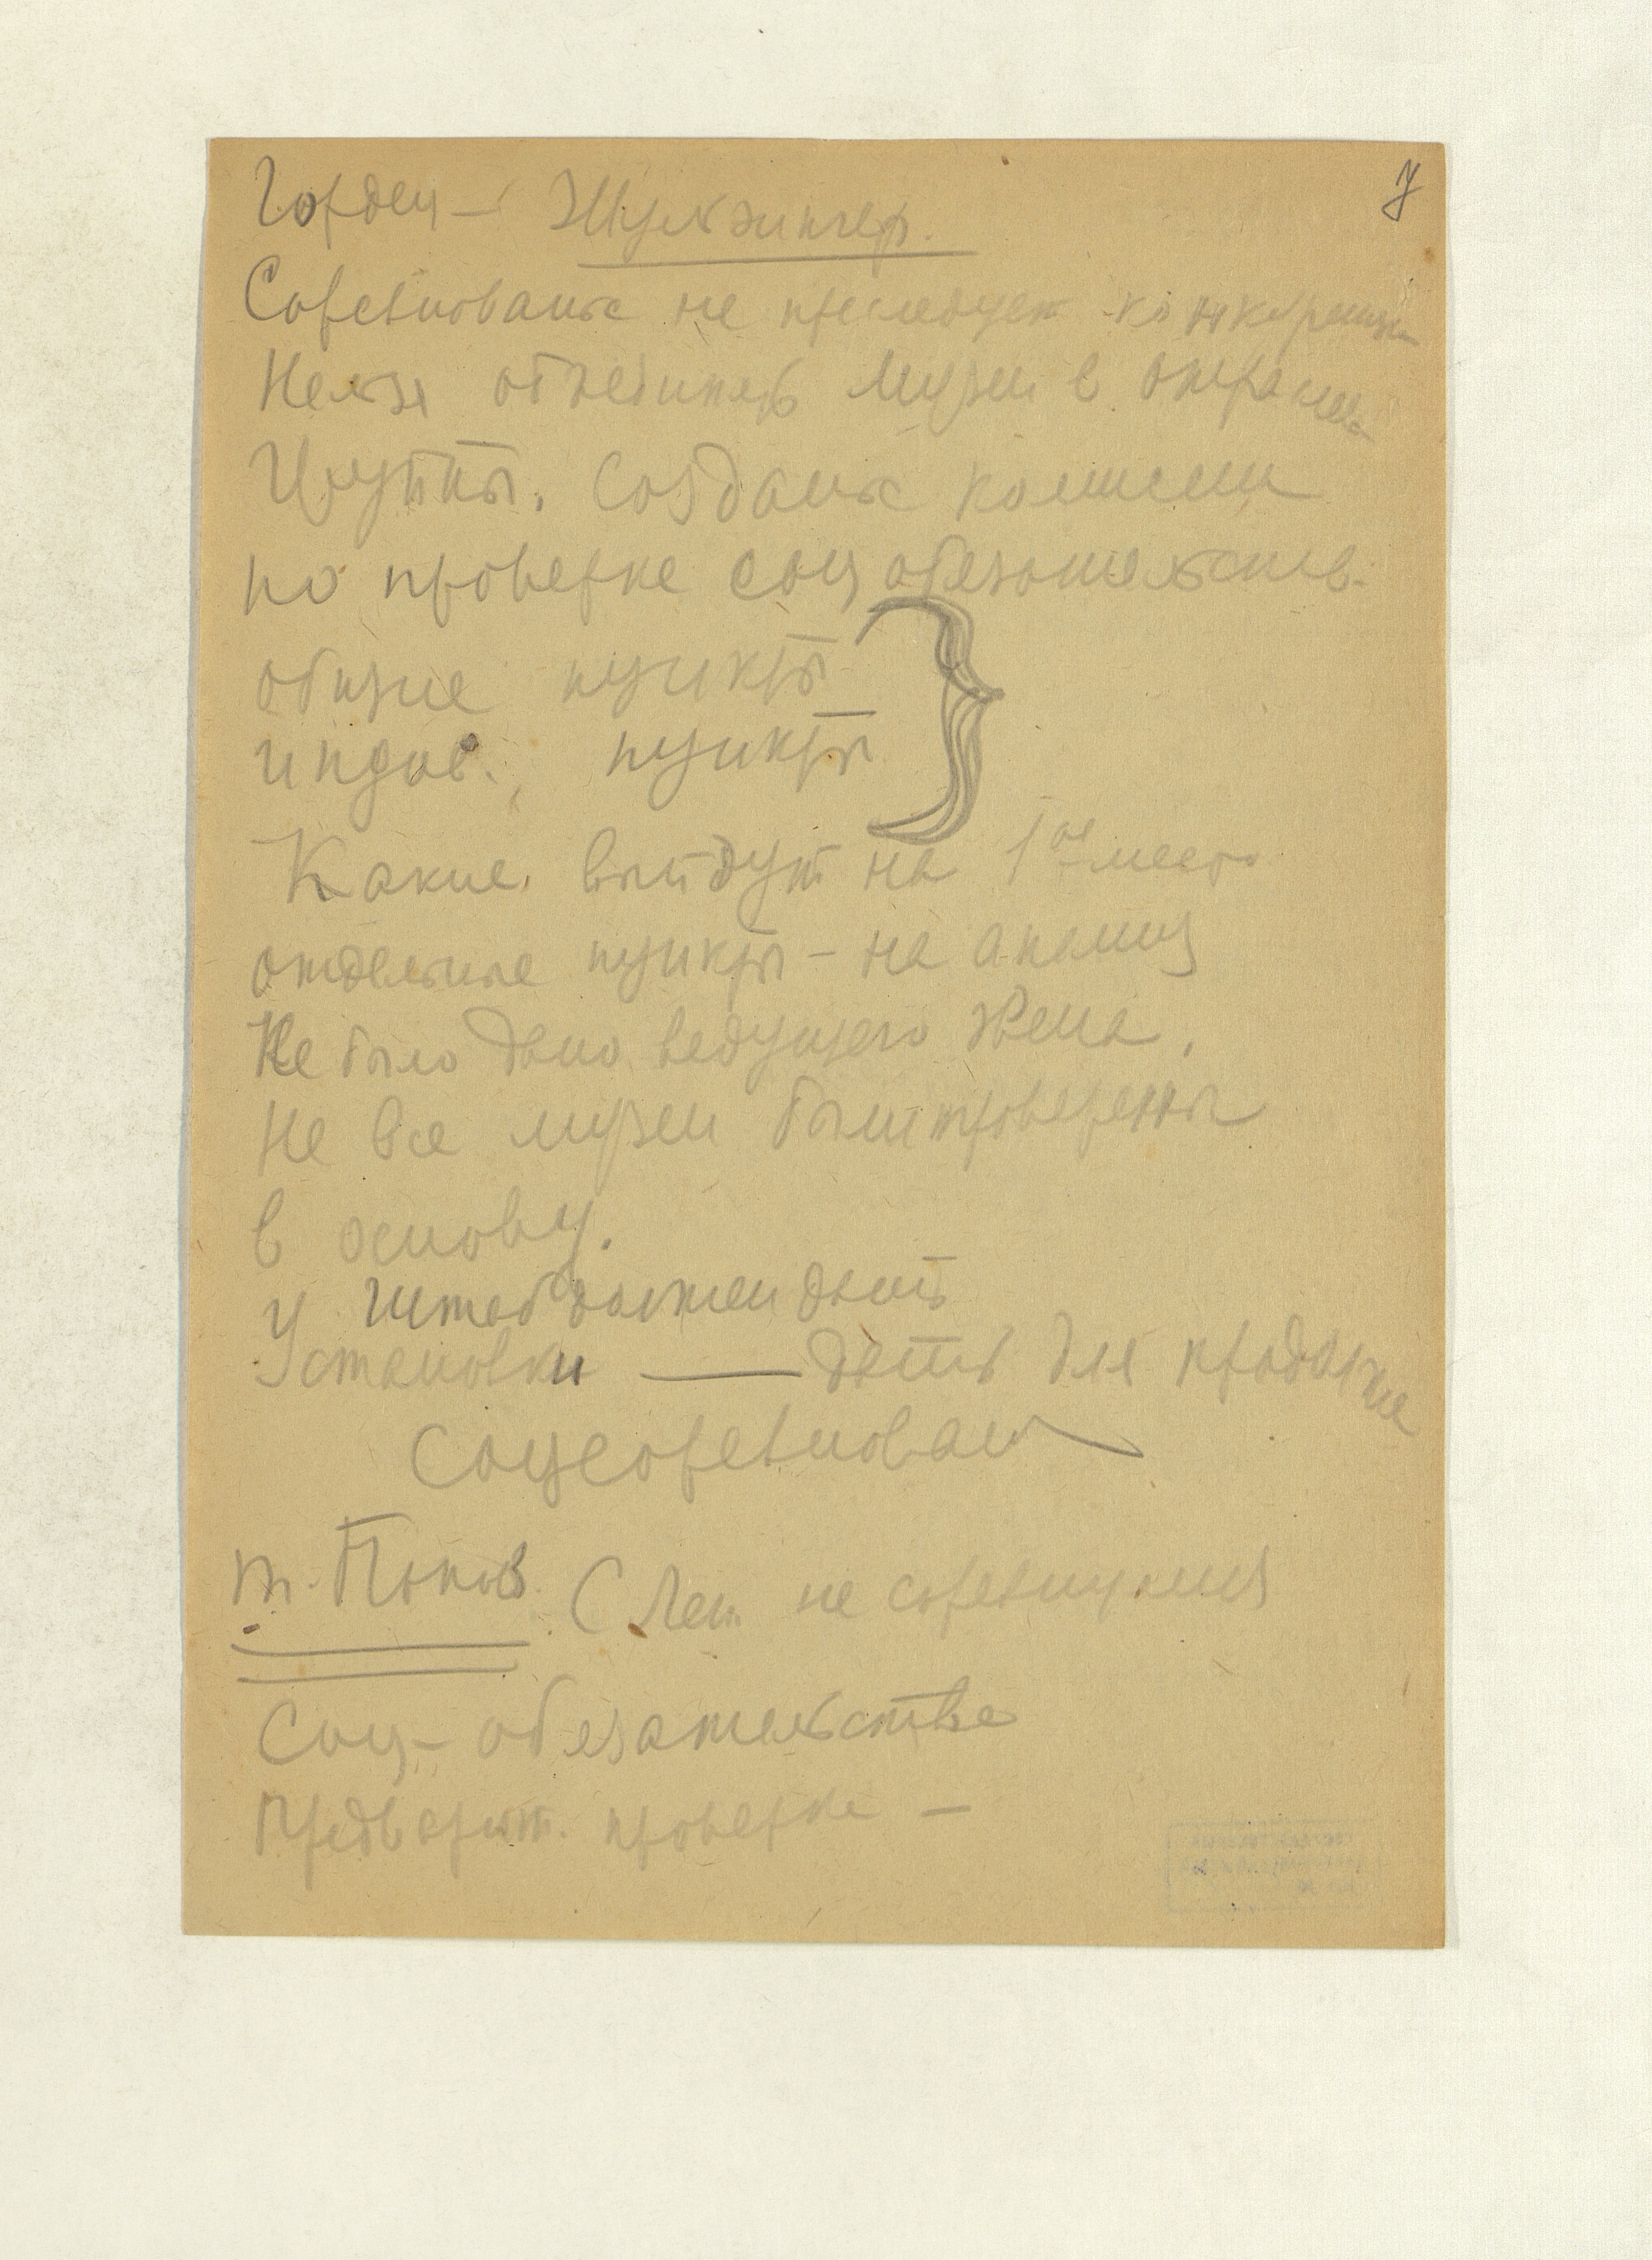 7
Гордец — Шульзингер.
Соревнование не преследует конкуренции
Нельзя объединять музеи в отраслевые
группы. Создание комиссии
по проверке соц обязательств.
общие пункты
индив. пункты
Какие выйдут на 1ое место
отдельные пункты — на анализ
Не было дано ведущего звена.
Не все музеи были проверены
в основу.
У Штаб должен дать
Установки — дать для продолже
Соцсоревнован
т. Попов. С Лен. не соревнуемся
Соц — обязательства
Предварит. проверка —